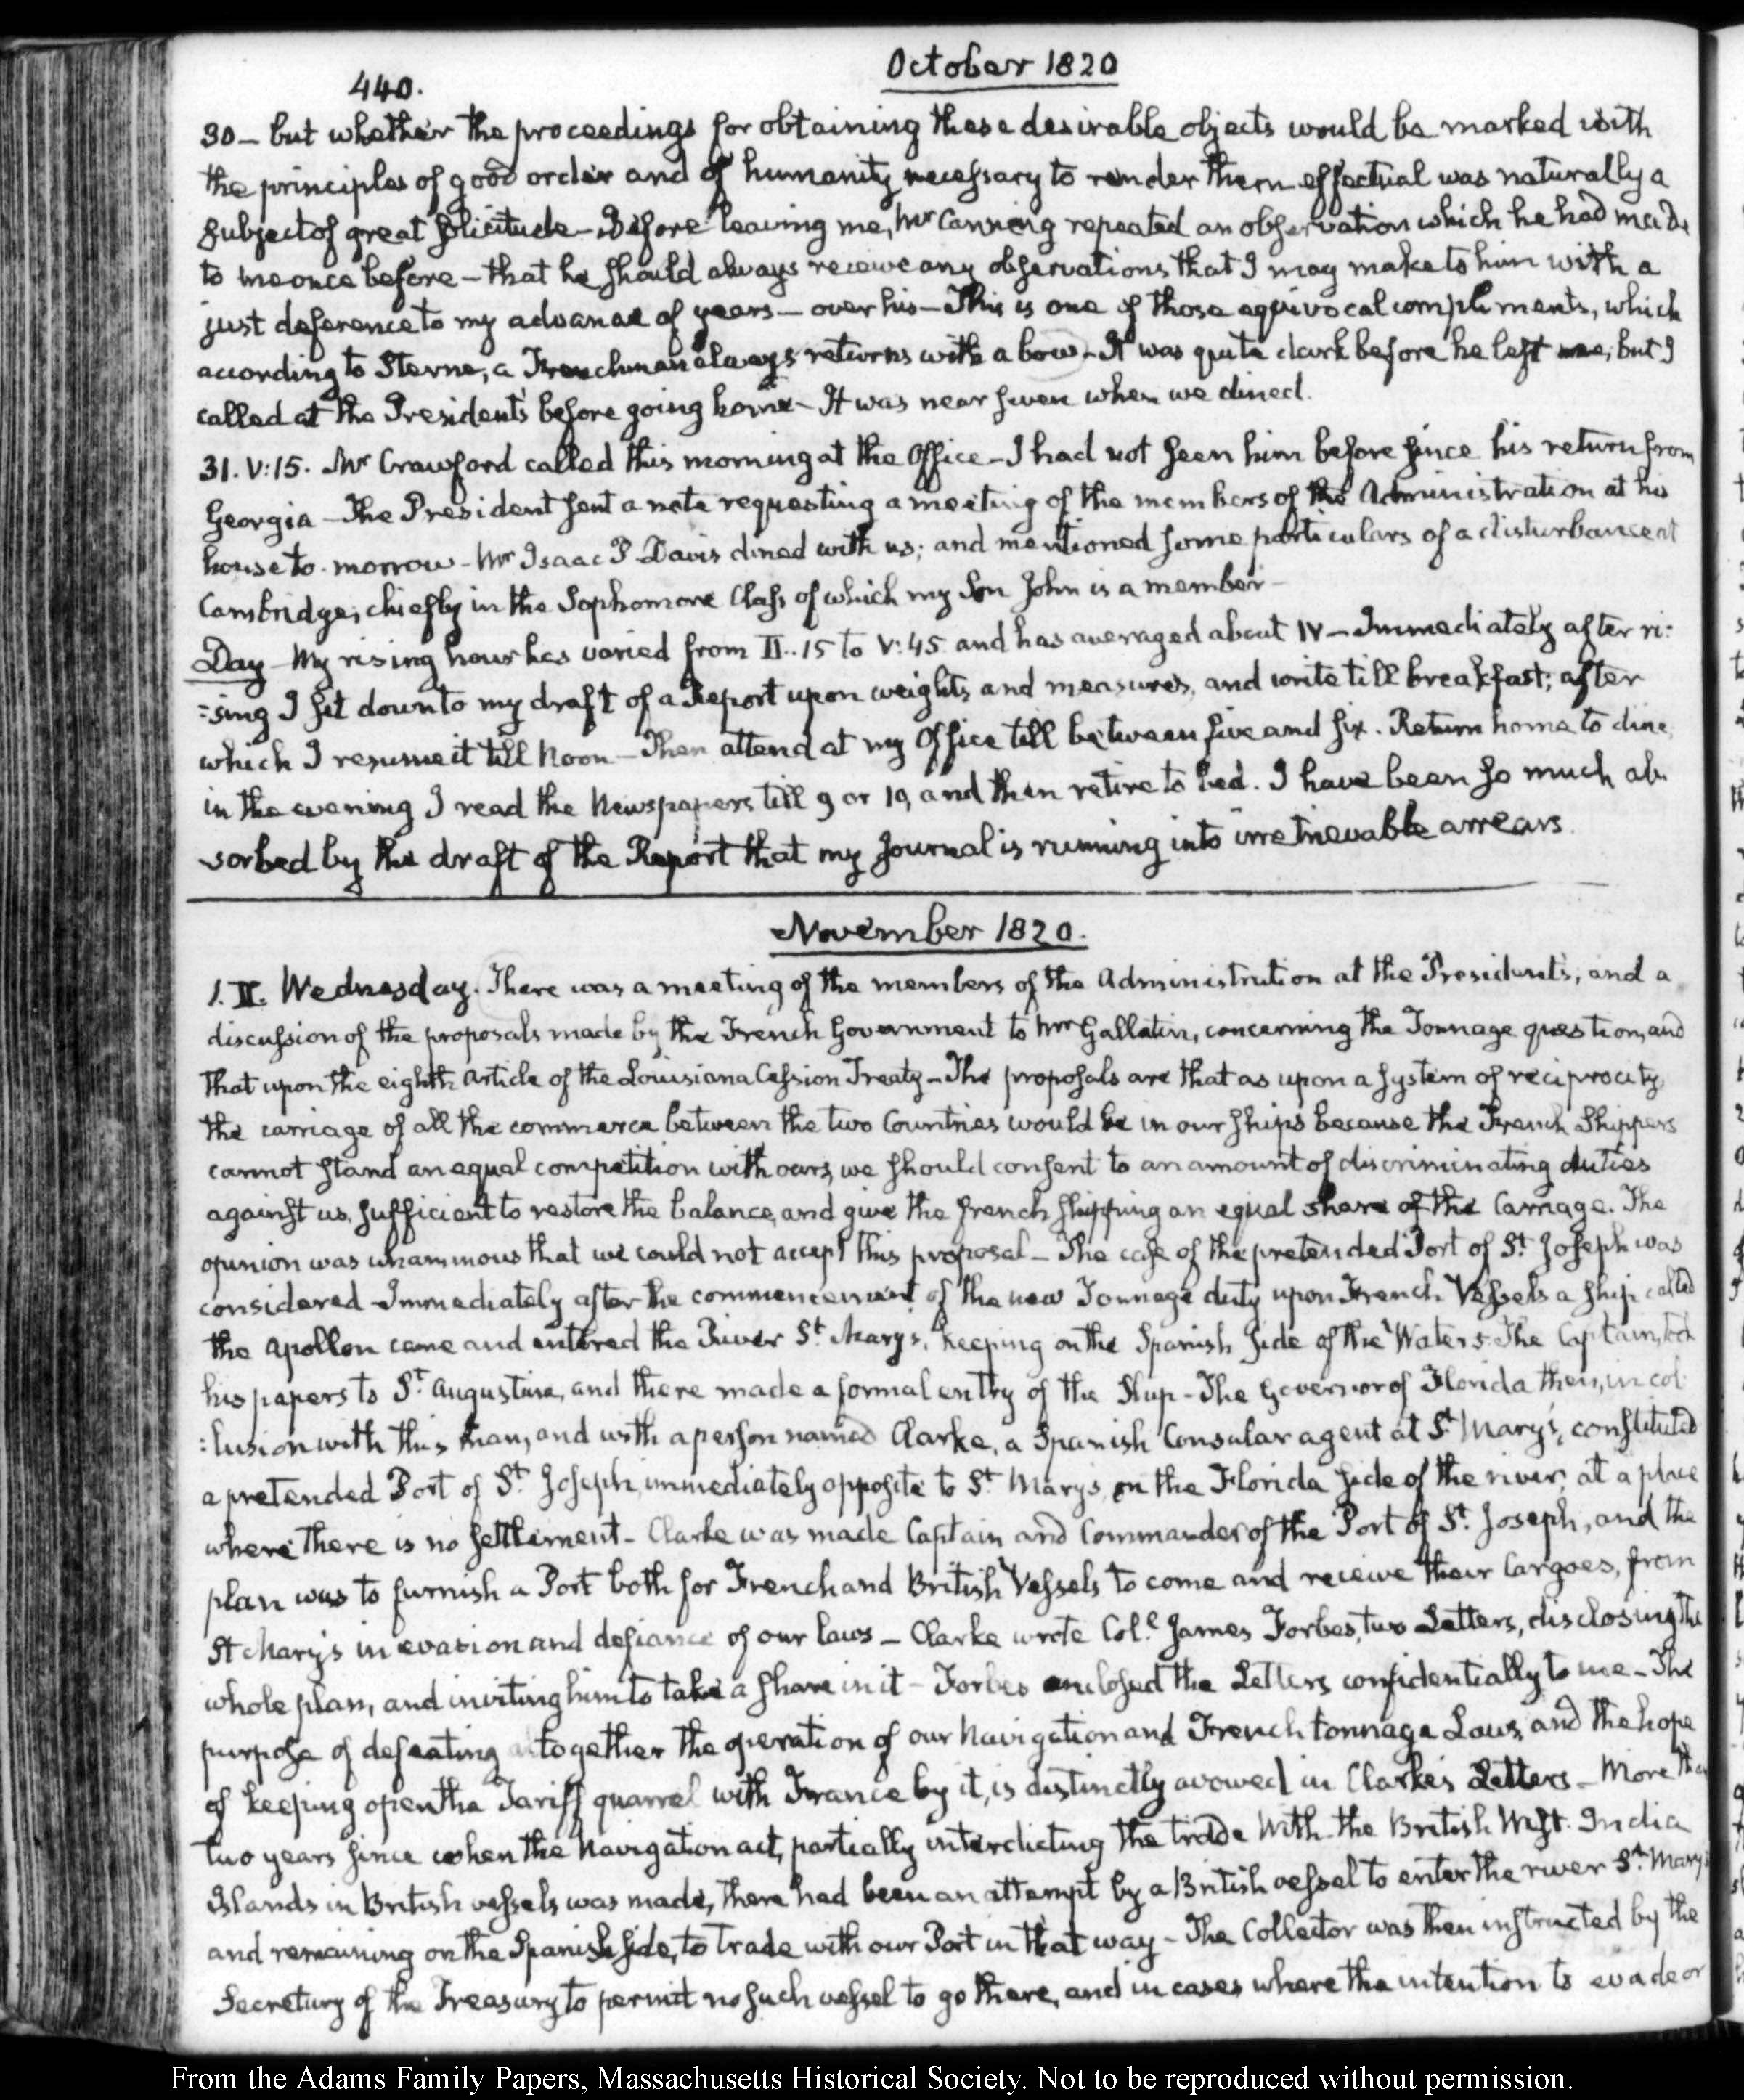 440.
October 1820
30 — but whether the proceedings for obtaining these desirable objects would be marked with
the principles of good order and of humanity necessary to render them effectual was naturally a
subject of great solicitude — Before leaving me, Mr Canning repeated an observation which he had made
to me once before — that he should always receive any observations that I may make to him with a
just deference to my advance of years — over his — This is one of those equivocal compliments, which
according to Sterne, a Frenchman always returns with a bow — It was quite dark before he left me, but I
called at the President's before going home — It was near seven when we dined.
31. V:15. Mr Crawford called this morning at the Office — I had not seen him before since his return from
Georgia — The President sent a note requesting a meeting of the members of the Administration at his
house to-morrow — Mr Isaac P. Davis dined with us; and mentioned some particulars of a disturbance at
Cambridge, chiefly in the Sophomore Class of which my Son John is a member —
Day — My rising hour has varied from II..15 to V:45 and has averaged about IV — Immediately after ri:
:sing I sit down to my draft of a Report upon weights and measures, and write till breakfast; after
which I resume it till Noon — Then attend at my Office till between five and six. Return home to dine,
in the evening I read the Newspapers till 9 or 10, and then retire to bed. I have been so much ab
sorbed by the draft of the Report that my Journal is running into irretrievable arrears.
November 1820.
1. II. Wednesday. There was a meeting of the members of the Administration at the President's, and a
discussion of the proposals made by the French Government to Mr Gallatin, concerning the Tonnage question, and
that upon the eighth Article of the Louisiana Cession Treaty — The proposals are that as upon a system of reciprocity
the carriage of all the commerce between the two Countries would be in our ships because the French Shippers
cannot stand an equal competition with ours, we should consent to an amount of discriminating duties
against us, sufficient to restore the balance, and give the French shipping an equal share of the Carriage. The
opinion was unanimous that we could not accept this proposal — The case of the pretended Port of St. Joseph was
considered — Immediately after the commencement of the new Tonnage duty upon French Vessels a ship called
the Apollon came and entered the River St. Mary's, keeping on the Spanish side of the Waters. The Captain, took
his papers to St. Augustine, and there made a formal entry of the Ship — The Governor of Florida then, in col
:lusion with this man, and with a person named Clarke, a Spanish Consular agent at St. Mary's, constituted
a pretended Port of St. Joseph, immediately opposite to St. Mary's on the Florida side of the river, at a place
where there is no settlement — Clarke was made Captain and Commander of the Port of St. Joseph, and the
plan was to furnish a Port both for French and British Vessels to come and receive their Cargoes, from
St Mary's in evasion and defiance of our laws — Clarke wrote Coll. James Forbes, two Letters, disclosing the
whole plan, and inviting him to take a share in it — Forbes enclosed the Letters confidentially to me — The
purpose of defeating altogether the operation of our Navigation and French tonnage Laws, and the hope
of keeping open the Tariff quarrel with France by it, is distinctly avowed in Clarke's Letters — More than
two years since when the Navigation act, partially interdicting the trade with the British West India
Islands in British vessels was made, there had been an attempt by a British vessel to enter the river St. Mary's
and remaining on the Spanish side, to trade with our Port in that way — The Collector was then instructed by the
Secretary of the Treasury to permit no such vessel to go there, and in cases where the intention to evade or
From the Adams Family Papers, Massachusetts Historical Society. Not to be reproduced without permission.